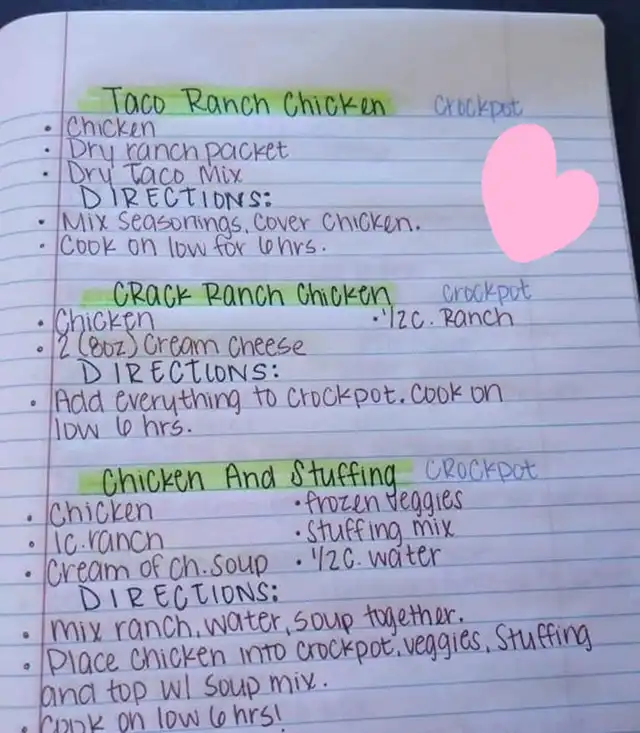 Taco Ranch Chicken Crockpot
• Chicken
• Dry ranch packet
• Dry Taco Mix
DIRECTIONS:
• Mix seasonings, cover chicken.
• Cook on low for 6 hrs.
CRack Ranch Chicken Crockpot
• Chicken • 1/2 c. Ranch
• 2 (8oz) Cream Cheese
DIRECTIONS:
• Add everything to crockpot. Cook on
low 6 hrs.
Chicken And Stuffing CROCKpot
• Chicken • frozen veggies
• 1c. ranch • stuffing mix
• Cream of ch. soup • 1/2 c. water
DIRECTIONS:
• Mix ranch, water, soup together.
• Place chicken into crockpot, veggies, Stuffing
and top w/ soup mix.
• Cook on low 6 hrs!